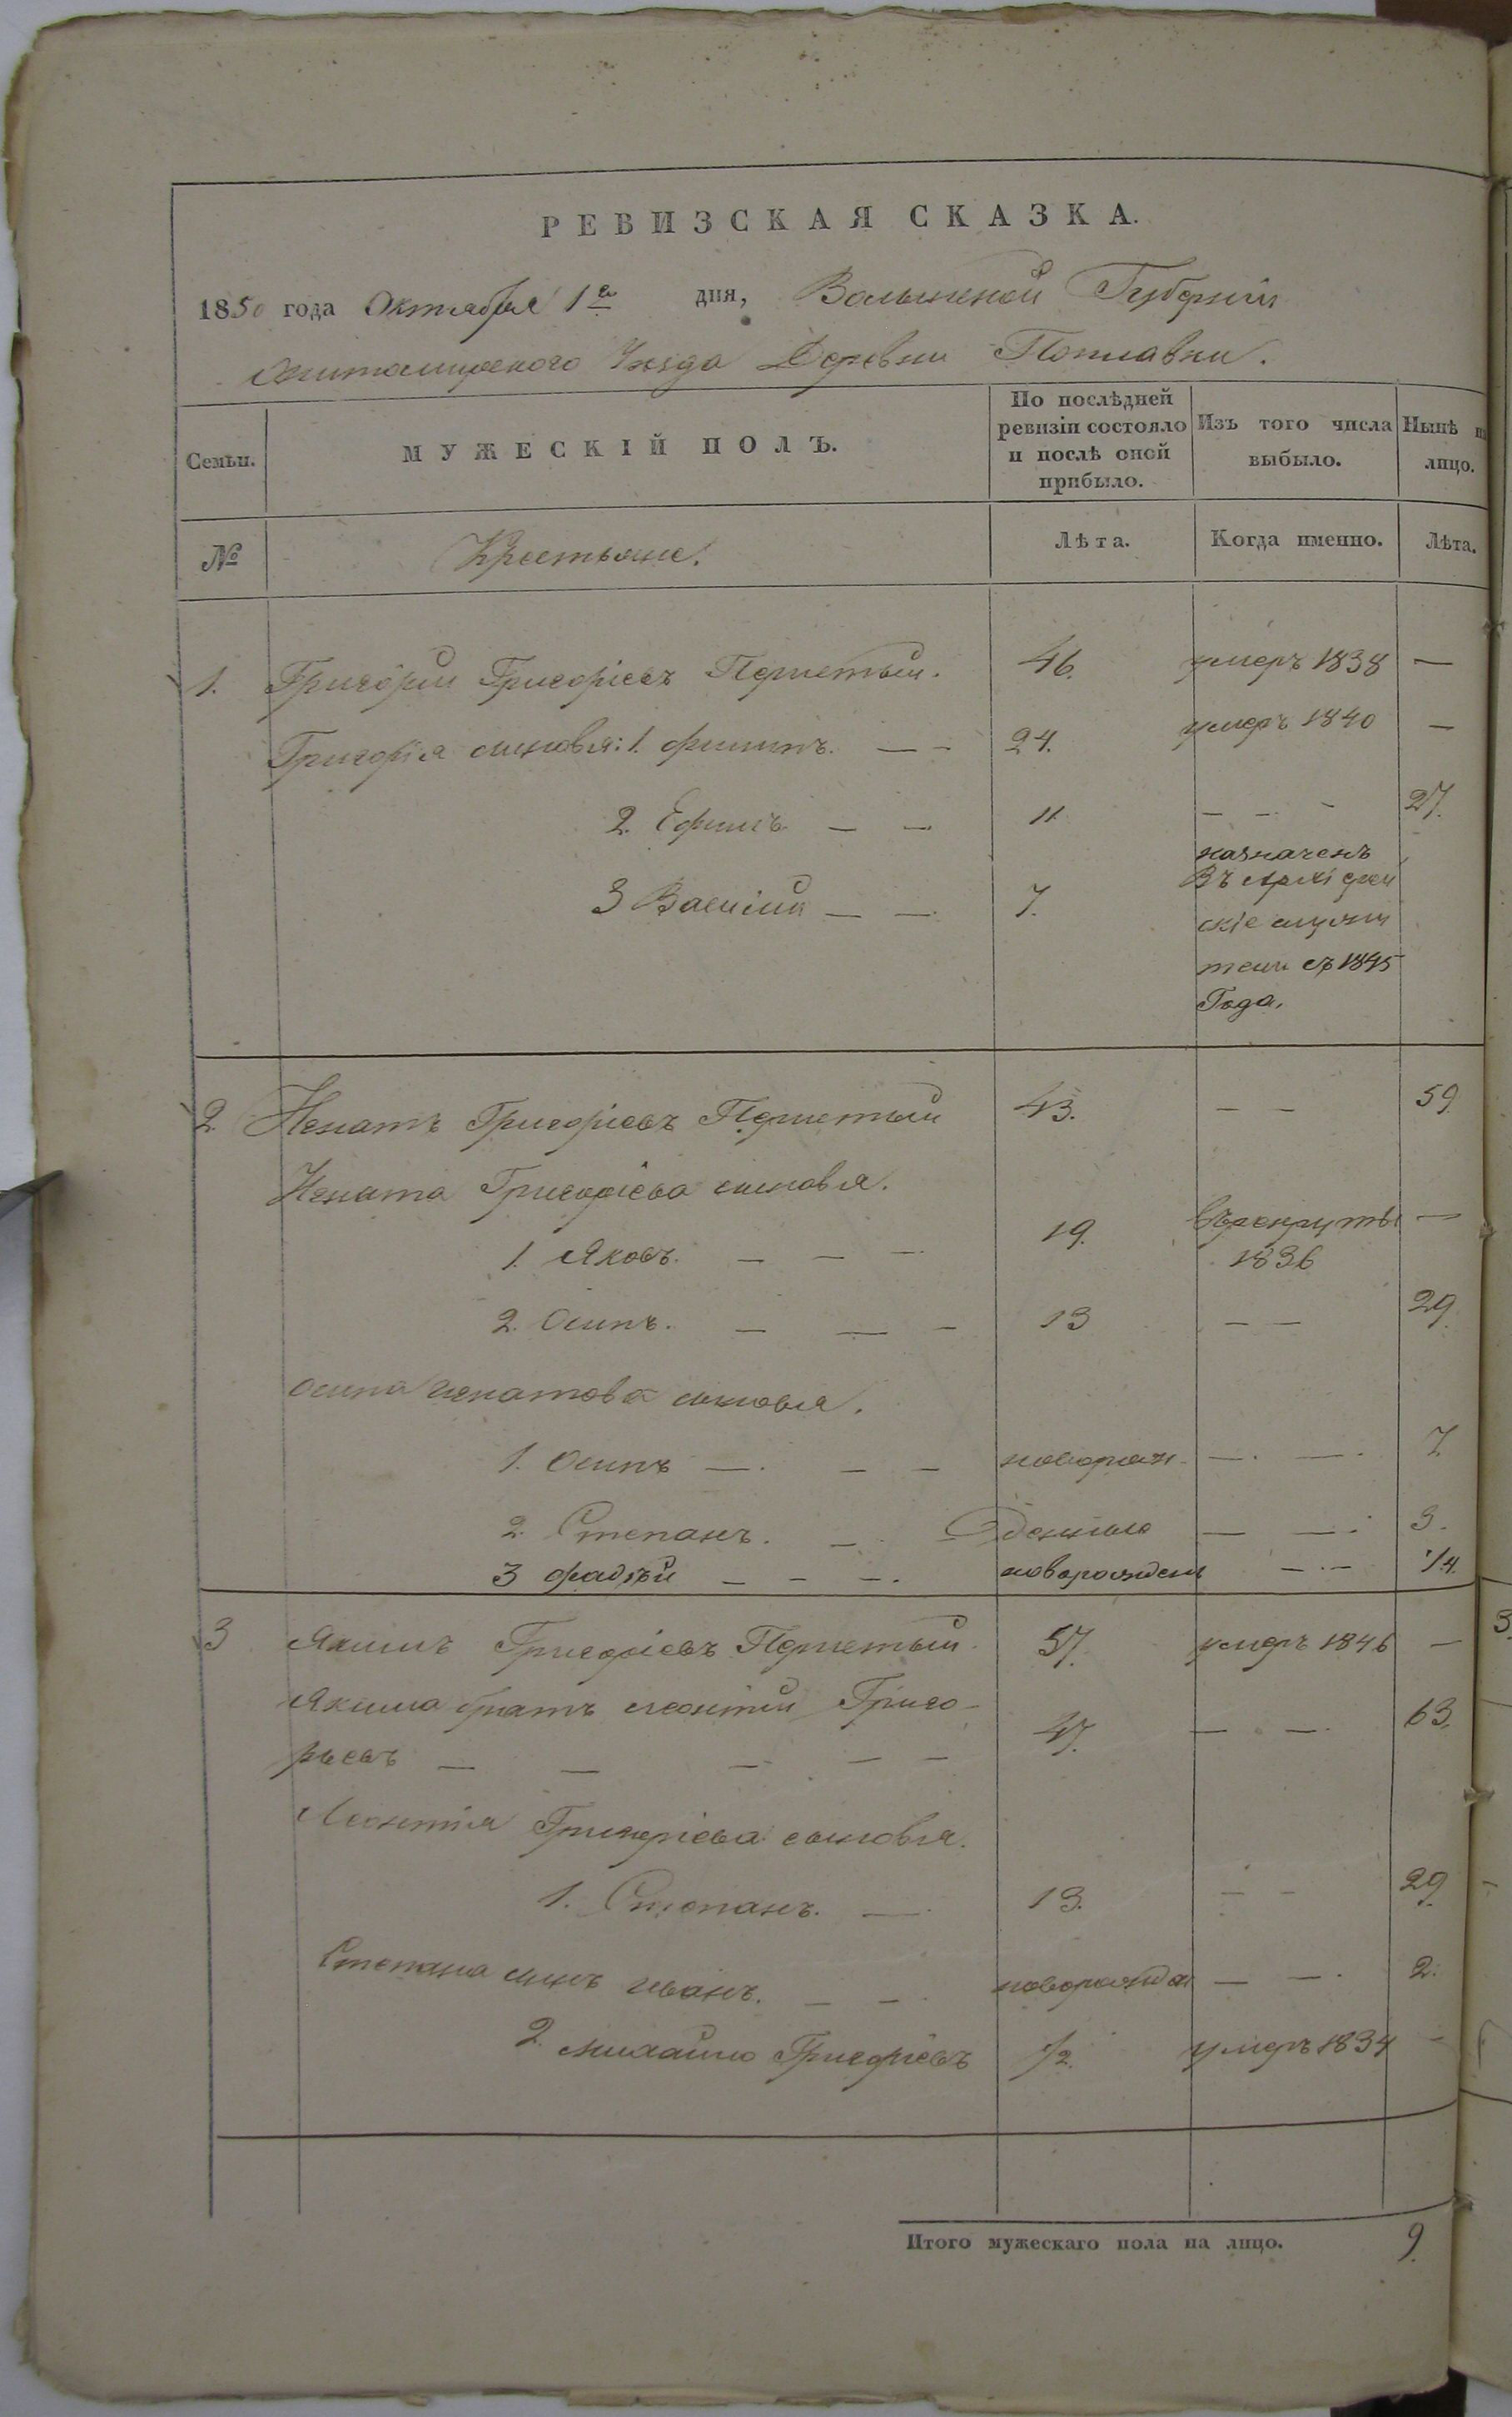 РЕВИЗСКАЯ СКАЗКА.
1850 года Октября 1го дня, Волынской Губерніи
Житомирского Уезда Деревни Поплавки.
Семьи. МУЖЕСКІЙ ПОЛЪ. По послѣдней ревизіи состояло и послѣ оной прибыло. Изъ того числа выбыло. Нынѣ на лицо.
№ Крестьяне. Лѣта. Когда именно. Лѣта.
1. Григорій Григоріевъ 46. умеръ 1838 —
Григорія сыновья: 1. Филипъ. — — 24. умеръ 1840 —
2. Ефимъ — — 11 — — - 27.
3 Василій — — 7. назначенъ
Въ Архіерей
скіе служи
тели съ 1845
Года.
2 Игнатъ Григоріевъ 43. — — 59
Игната Григоріева сыновья.
1. Яковъ. — — — 19. въ рекруты —
1836
2. Осипъ. — — — 13 — — 29
Осипа Игнатова сыновья.
1. Осипъ —. — — новорож- —. —. 7
2. Степанъ. — . денные — —. 3.
3 Фадѣй — — —. новорожден —.— 1/4.
3 Якимъ Григоріевъ 57. умеръ 1846 —
Якима братъ Леонтій Григо-
рьевъ — — — — — 47. — . —. 63.
Леонтія Григоріева сыновья.
1. Степанъ. —. 13. — — 29
Степана сынъ Иванъ. — —. новорожден — —. 2.
2. Михайло Григоріевъ 1/2. умеръ 1834 -
Итого мужескаго пола на лицо. 9.